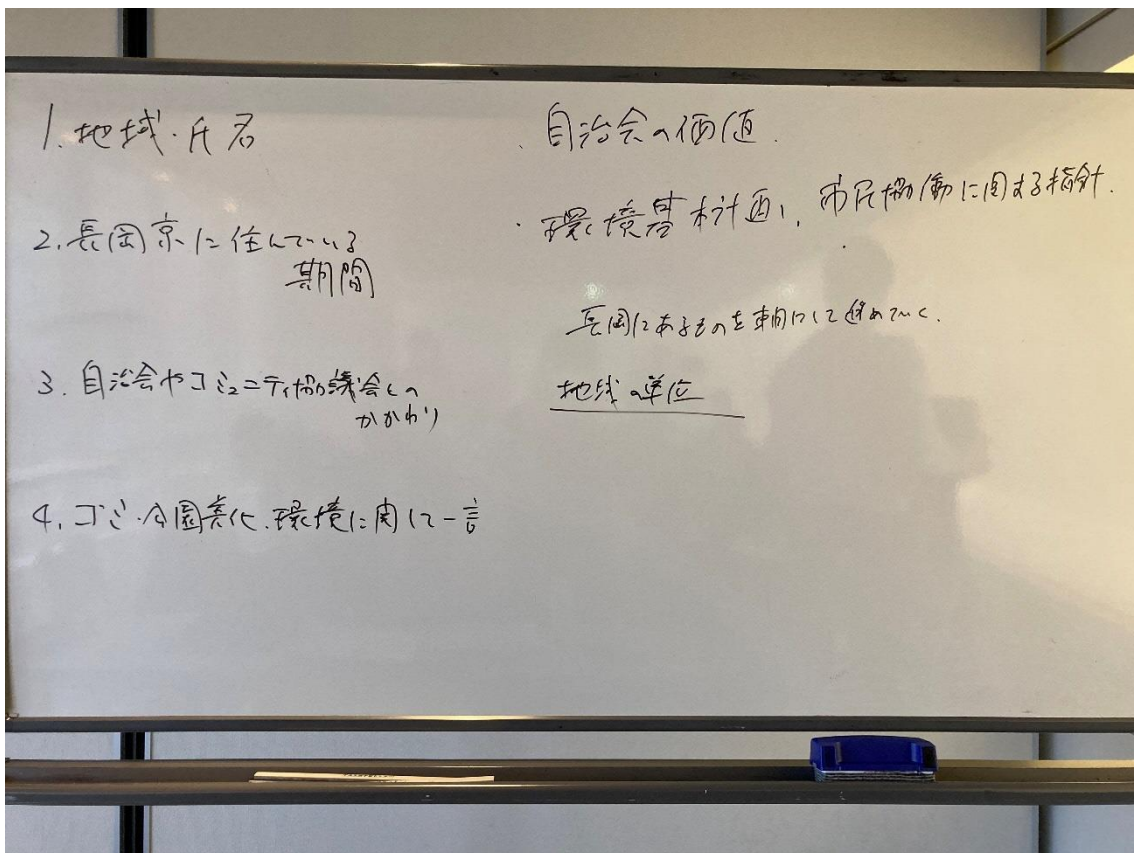 1. 地域・氏名
2. 長岡京に住んでいる
期間
3. 自治会やコミュニティ協議会との
かかわり
4. ゴミ・公園美化、環境に関して一言
・自治会の価値
・環境基本計画、市民協働に関する指針
長岡にあるものを軸にして進めていく.
地域の単位